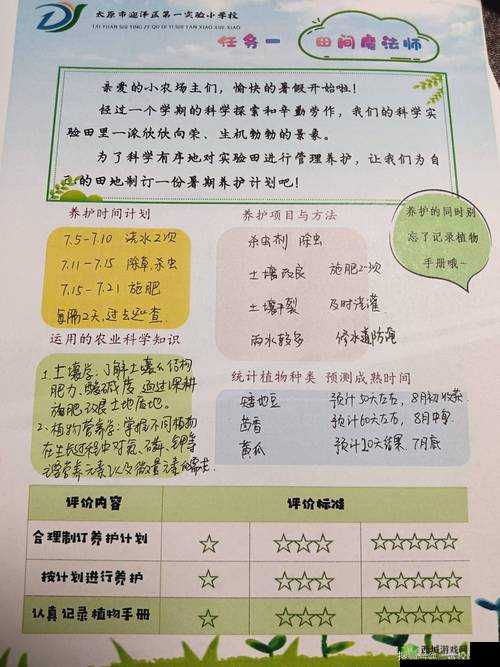 太原市迎泽区第一实验小学校
TAI YUAN SHI YING ZE QU DI YI SHI YAN XIAO XUE XIAO
任务一 田间魔法师
亲爱的小农场主们，愉快的暑假开始啦！
经过一个学期的科学探索和辛勤劳作，我们的科学实
验田里一派欣欣向荣、生机勃勃的景象。
为了科学有序地对实验田进行管理养护，让我们为自
己的田地制订一份暑期养护计划吧！
养护时间计划
7.5-7.10 浇水2次
7.11-7.15 除草,杀虫
7.15-7.21 施肥
每隔2天,过去巡查.
养护项目与方法
杀虫剂 除虫
土壤改良 施肥2次
土壤干裂 及时浇灌
雨水较多 修水道防淹
养护的同时别
忘了记录植物
手册哦~
运用的农业科学知识
1.土壤学,了解土壤的结构
肥力、酸碱度 通过深耕
施肥改良土地质地.
2.植物营养学:掌握不同植物
在生长过程中对氮、磷、钾等
主要营养元素以及微量元素的需求.
统计植物种类 预测成熟时间
矮地豆 预计50天左右，8月初收获
茴香 预计60天左右，8月中旬
黄瓜 预计20天结果 7月底
评价内容 评价标准
合理制订养护计划 ☆ ☆☆☆ ☆☆☆☆☆
按计划进行养护 ☆ ☆☆☆ ☆☆☆☆☆
认真记录植物手册 ☆ ☆☆☆ ☆☆☆☆☆
西城游戏网